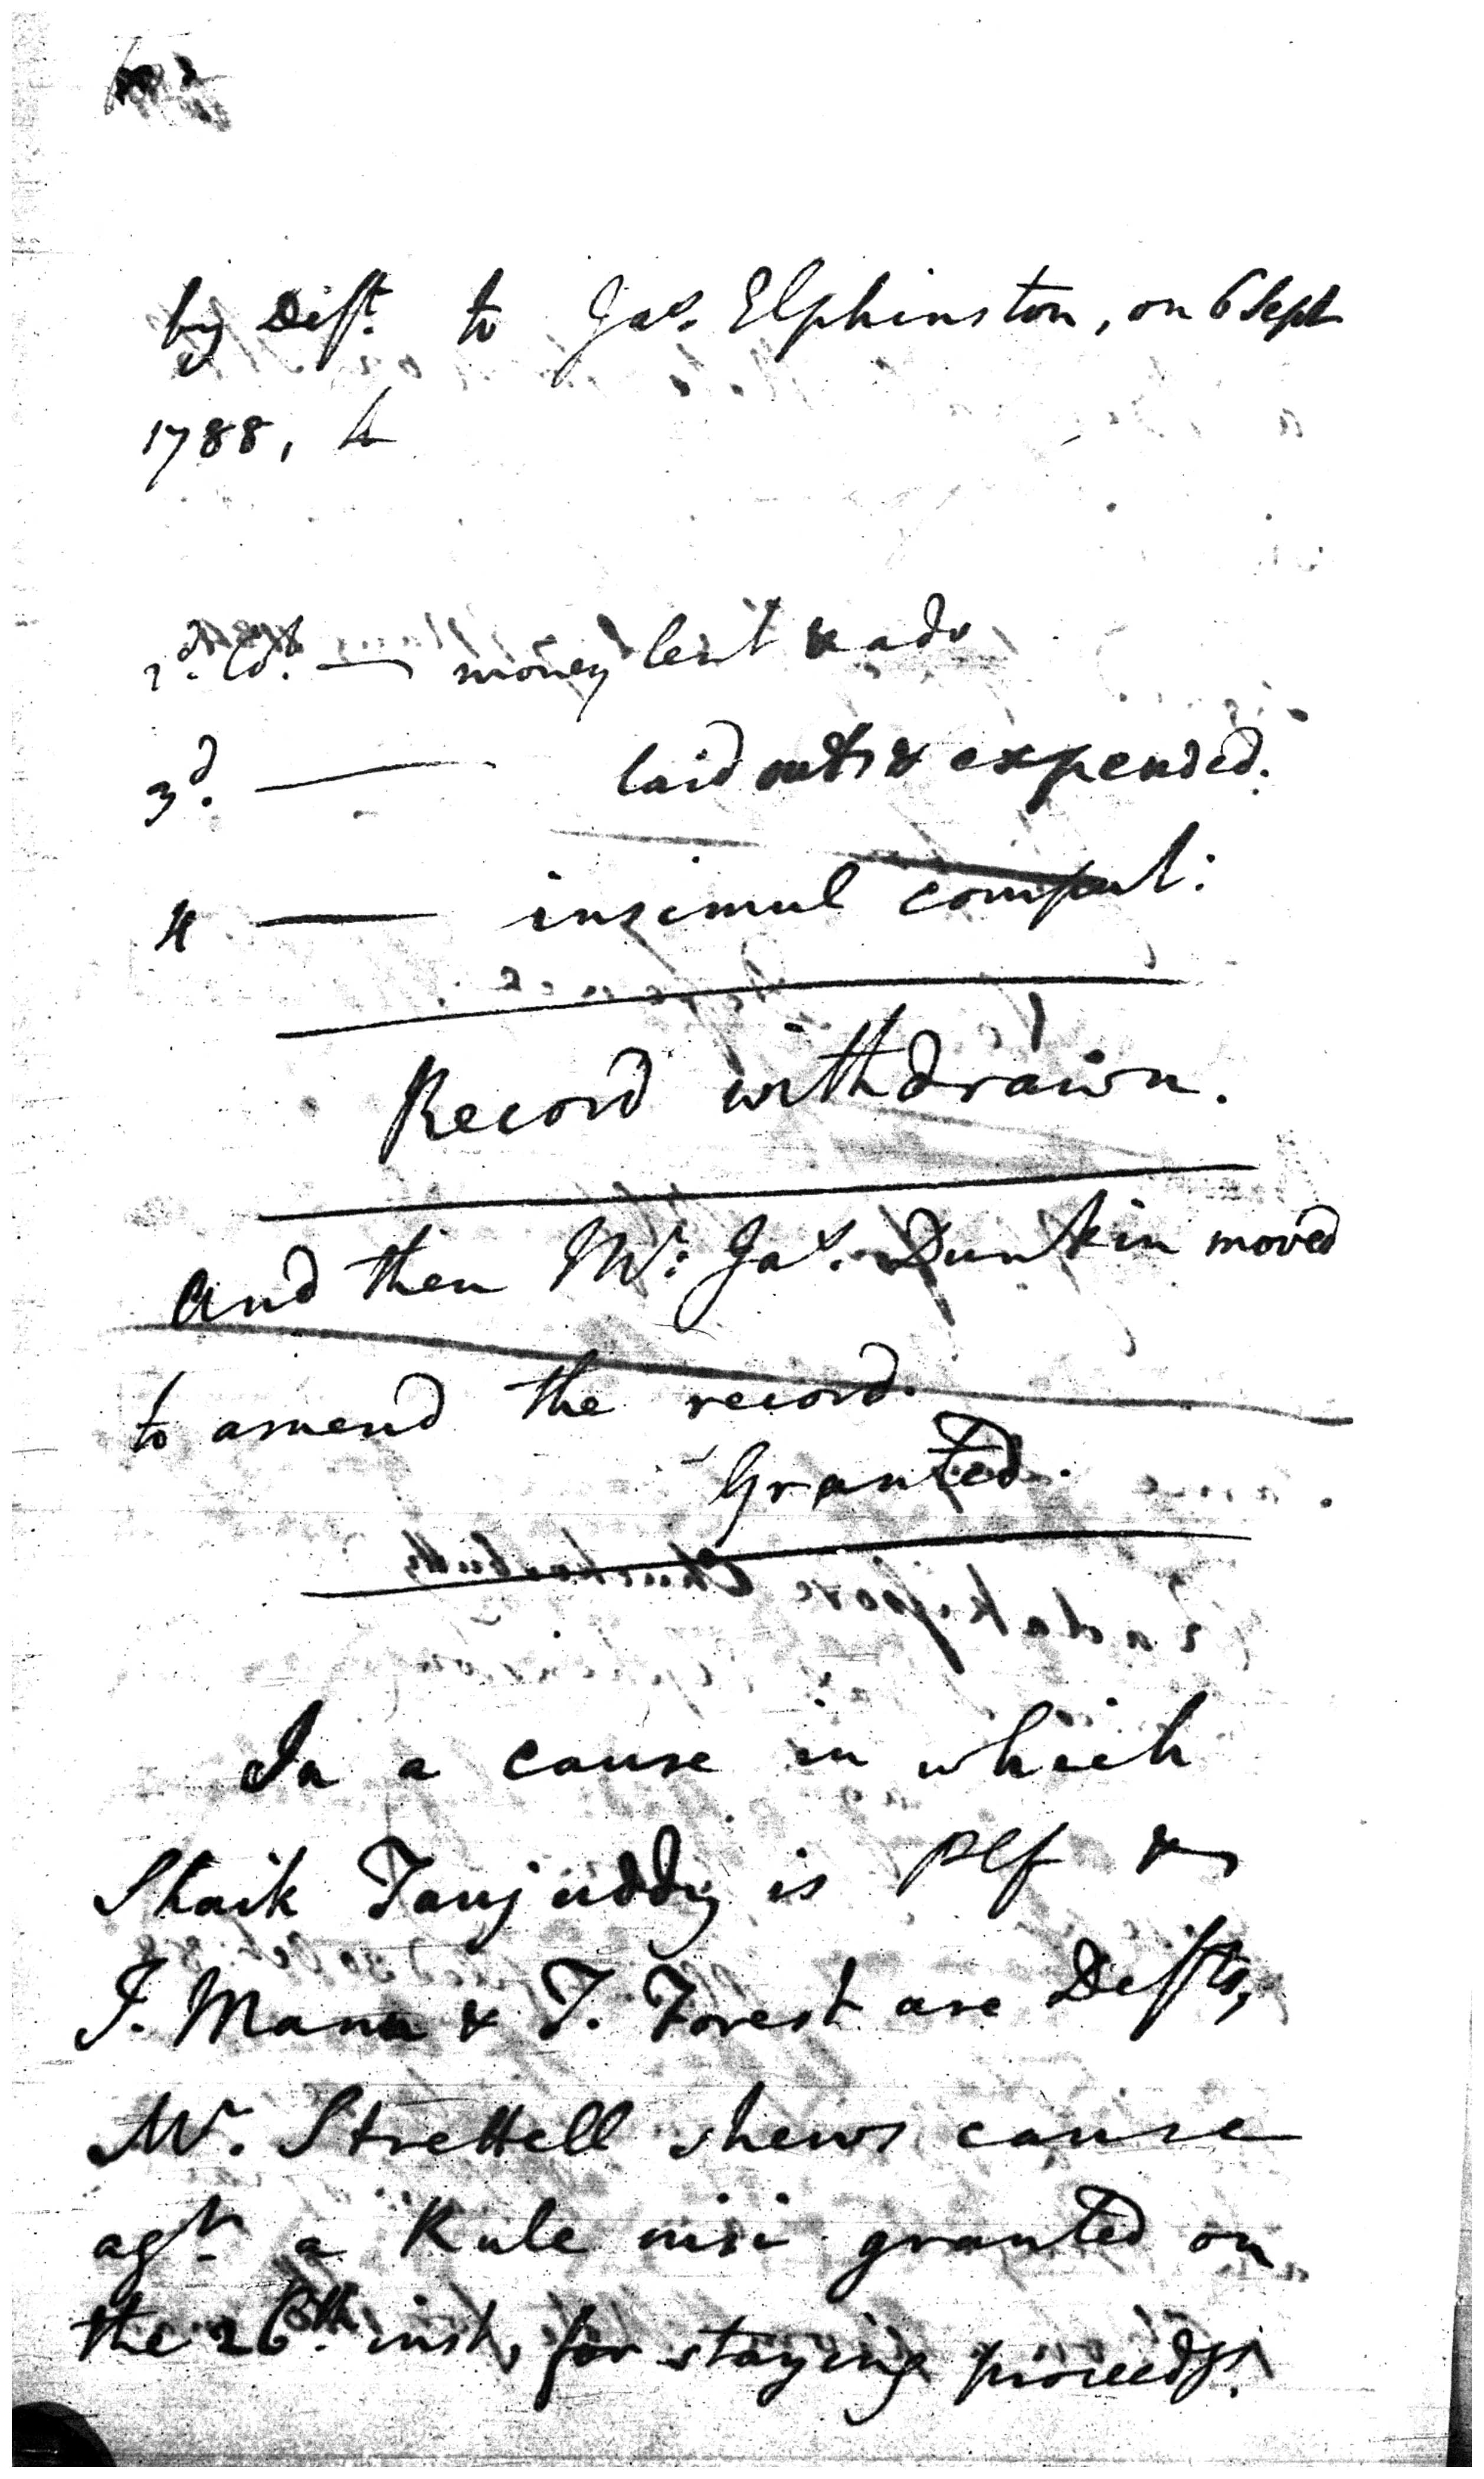 by Deft. to Jas. Elphinston, on 6 Sept
1788, &
2d. Ct. — money lent & adv
3d. — laid out & expended.
4 — insimul comput:
Record withdrawn.
And then Mr. Jas. Dunkin moved
to amend the record.
Granted.
In a cause in which
Shaik Taujuddy is Plf &
J. Mann & T. Forest are Defts,
Mr. Strettell shews cause
agt. a Rule nisi granted on
the 26th. inst, for staying proceedgs.